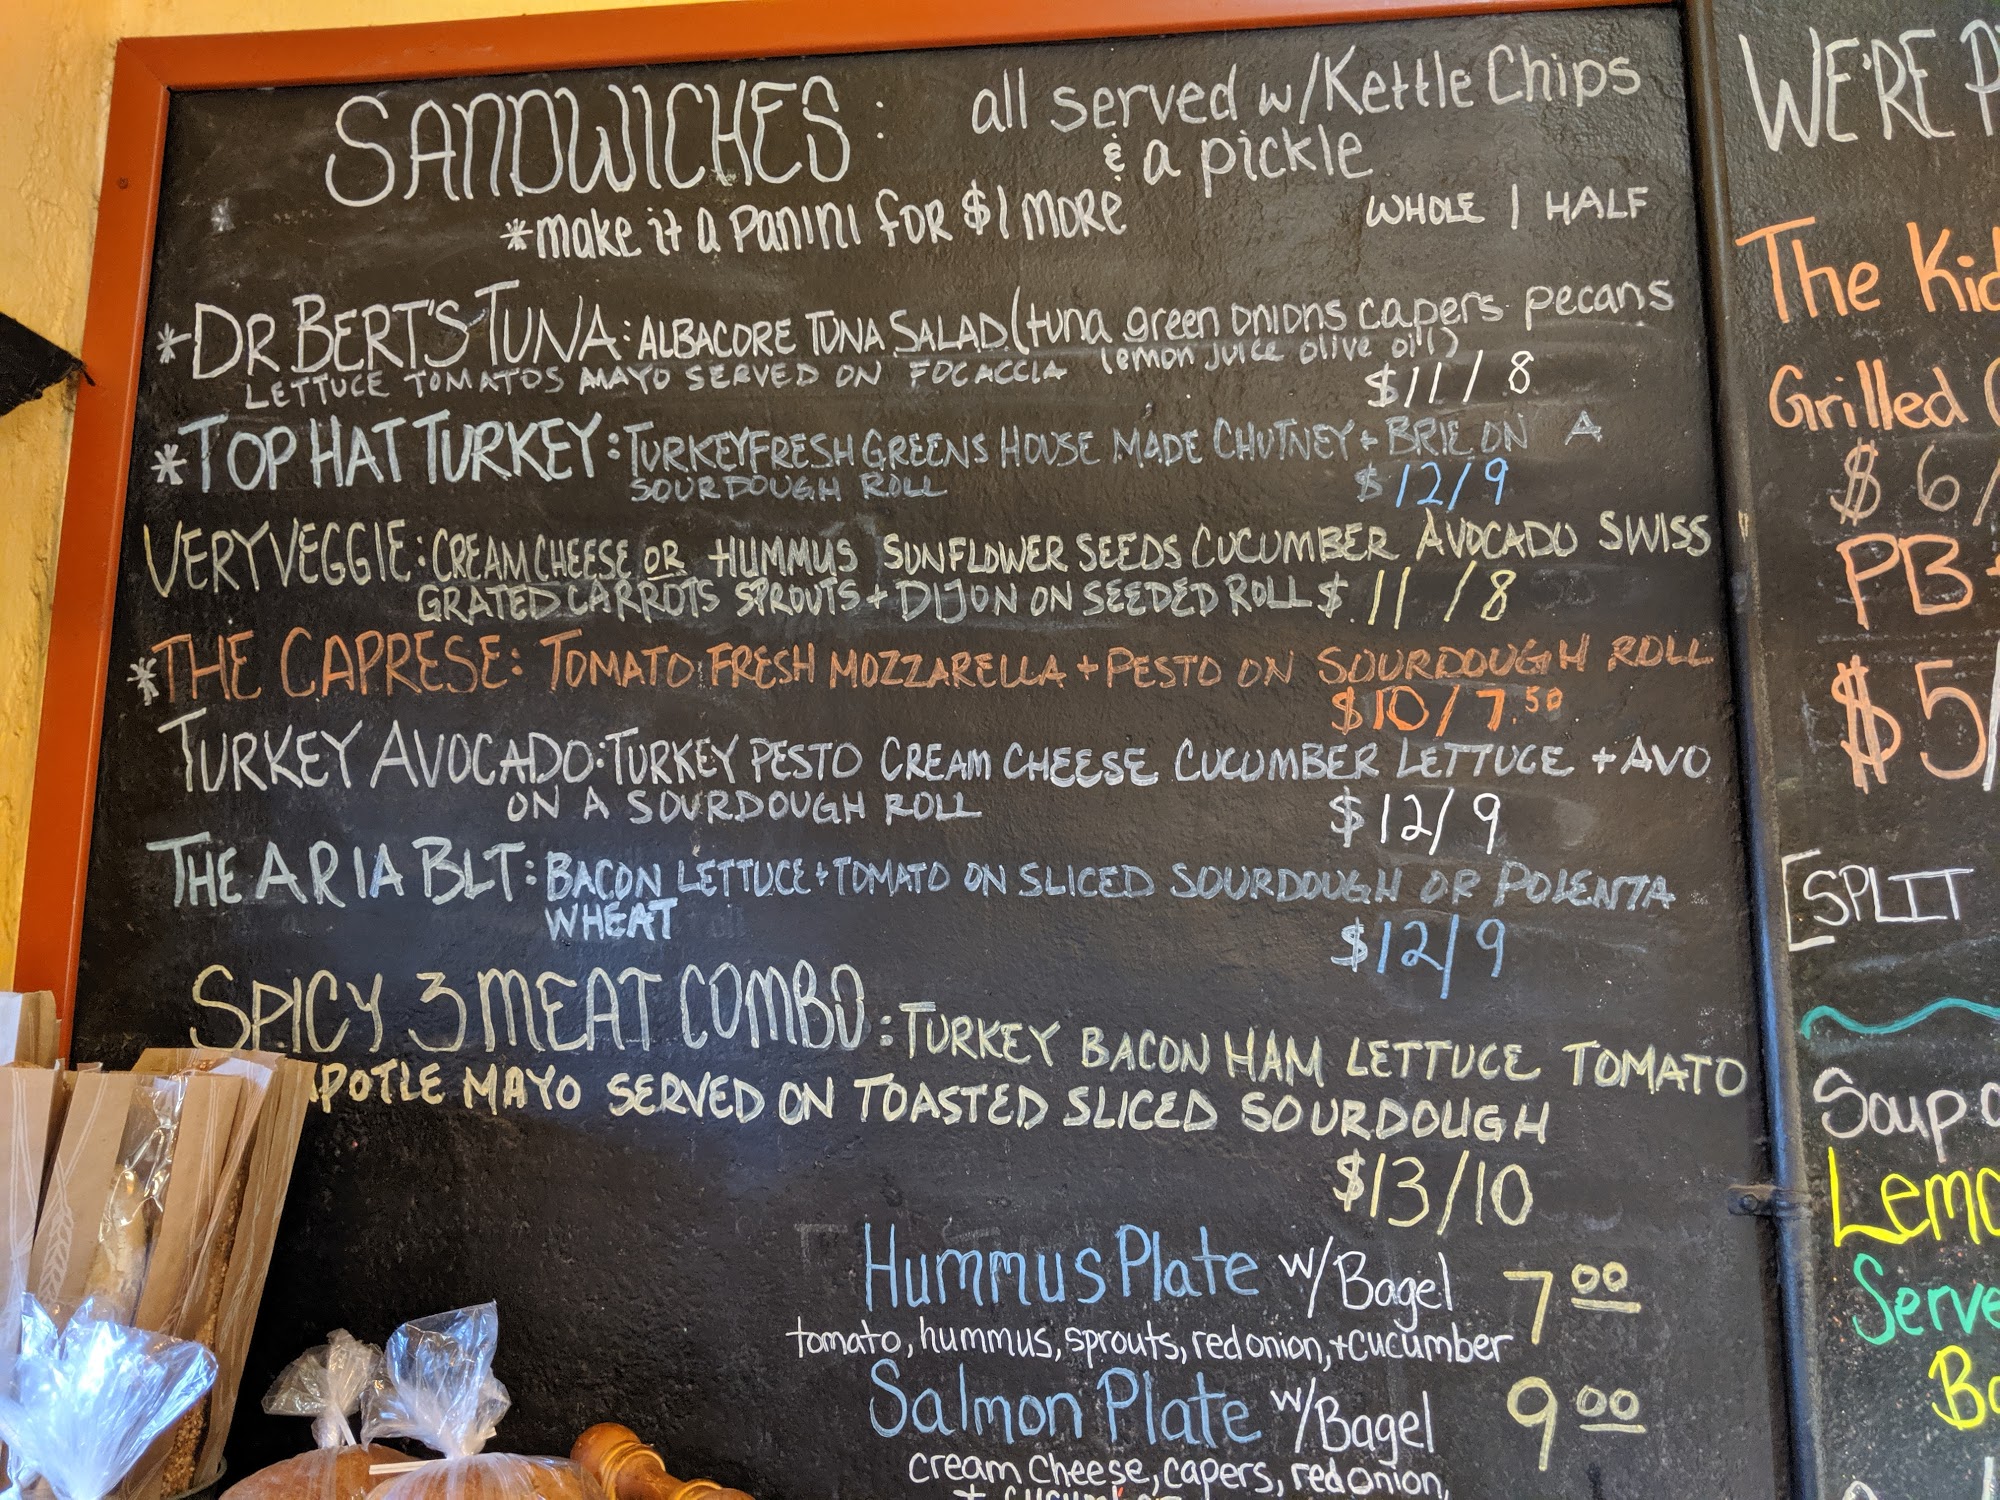 SANDWICHES: all served w/Kettle Chips
& a pickle
*make it a PANINI for $1 MORE
WHOLE | HALF
*DR BERT'S TUNA: ALBACORE TUNA SALAD (tuna green onions capers pecans
lemon juice olive oil)
LETTUCE TOMATOS MAYO SERVED ON FOCACCIA
$11/8
*TOP HAT TURKEY: TURKEY FRESH GREENS HOUSE MADE CHUTNEY + BRIE ON A
SOURDOUGH ROLL
$12/9
VERY VEGGIE: CREAM CHEESE OR HUMMUS SUNFLOWER SEEDS CUCUMBER AVOCADO SWISS
GRATED CARROTS SPROUTS + DIJON ON SEEDED ROLL $11/8
*THE CAPRESE: TOMATO FRESH MOZZARELLA + PESTO ON SOURDOUGH ROLL
$10/7.50
TURKEY AVOCADO: TURKEY PESTO CREAM CHEESE CUCUMBER LETTUCE + AVO
ON A SOURDOUGH ROLL $12/9
THE ARIA BLT: BACON LETTUCE + TOMATO ON SLICED SOURDOUGH OR POLENTA
WHEAT
$12/9
SPICY 3 MEAT COMBO: TURKEY BACON HAM LETTUCE TOMATO
POTLE MAYO SERVED ON TOASTED SLICED SOURDOUGH
$13/10
Hummus Plate w/Bagel 7.00
tomato, hummus, sprouts, red onion, + cucumber
Salmon Plate w/Bagel 9.00
cream cheese, capers, red onion,
WE'RE
The Kid
Grilled
$6/
PB +
$5/
[SPLIT
Soup
Lemo
Serve